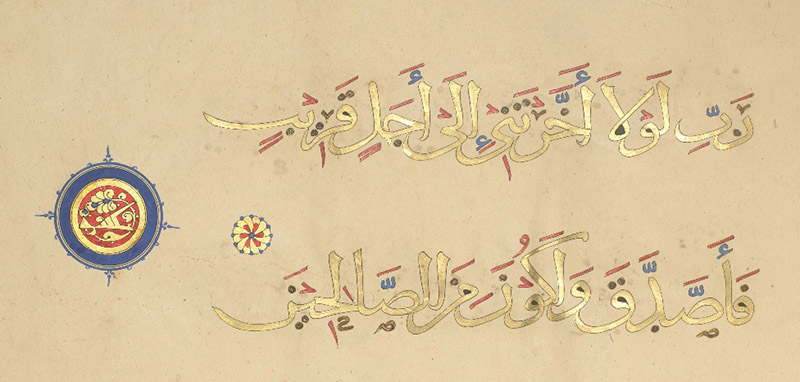 رَبِّ لَوْلَا أَخَّرْتَنِي إِلَى أَجَلٍ قَرِيبٍ
فَأَصَّدَّقَ وَأَكُونَ مِنَ الصَّالِحِينَ